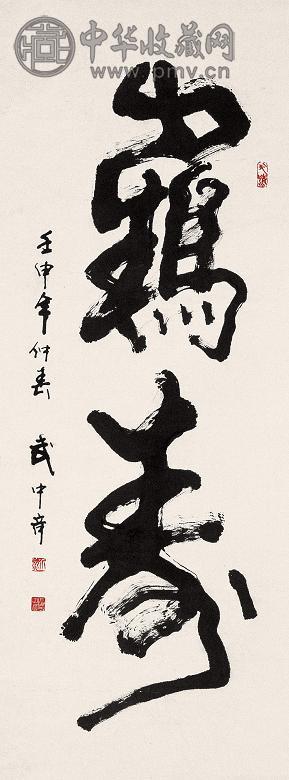 中华收藏网
www.pmv.cn
鶴壽
壬申年仲春 武中奇